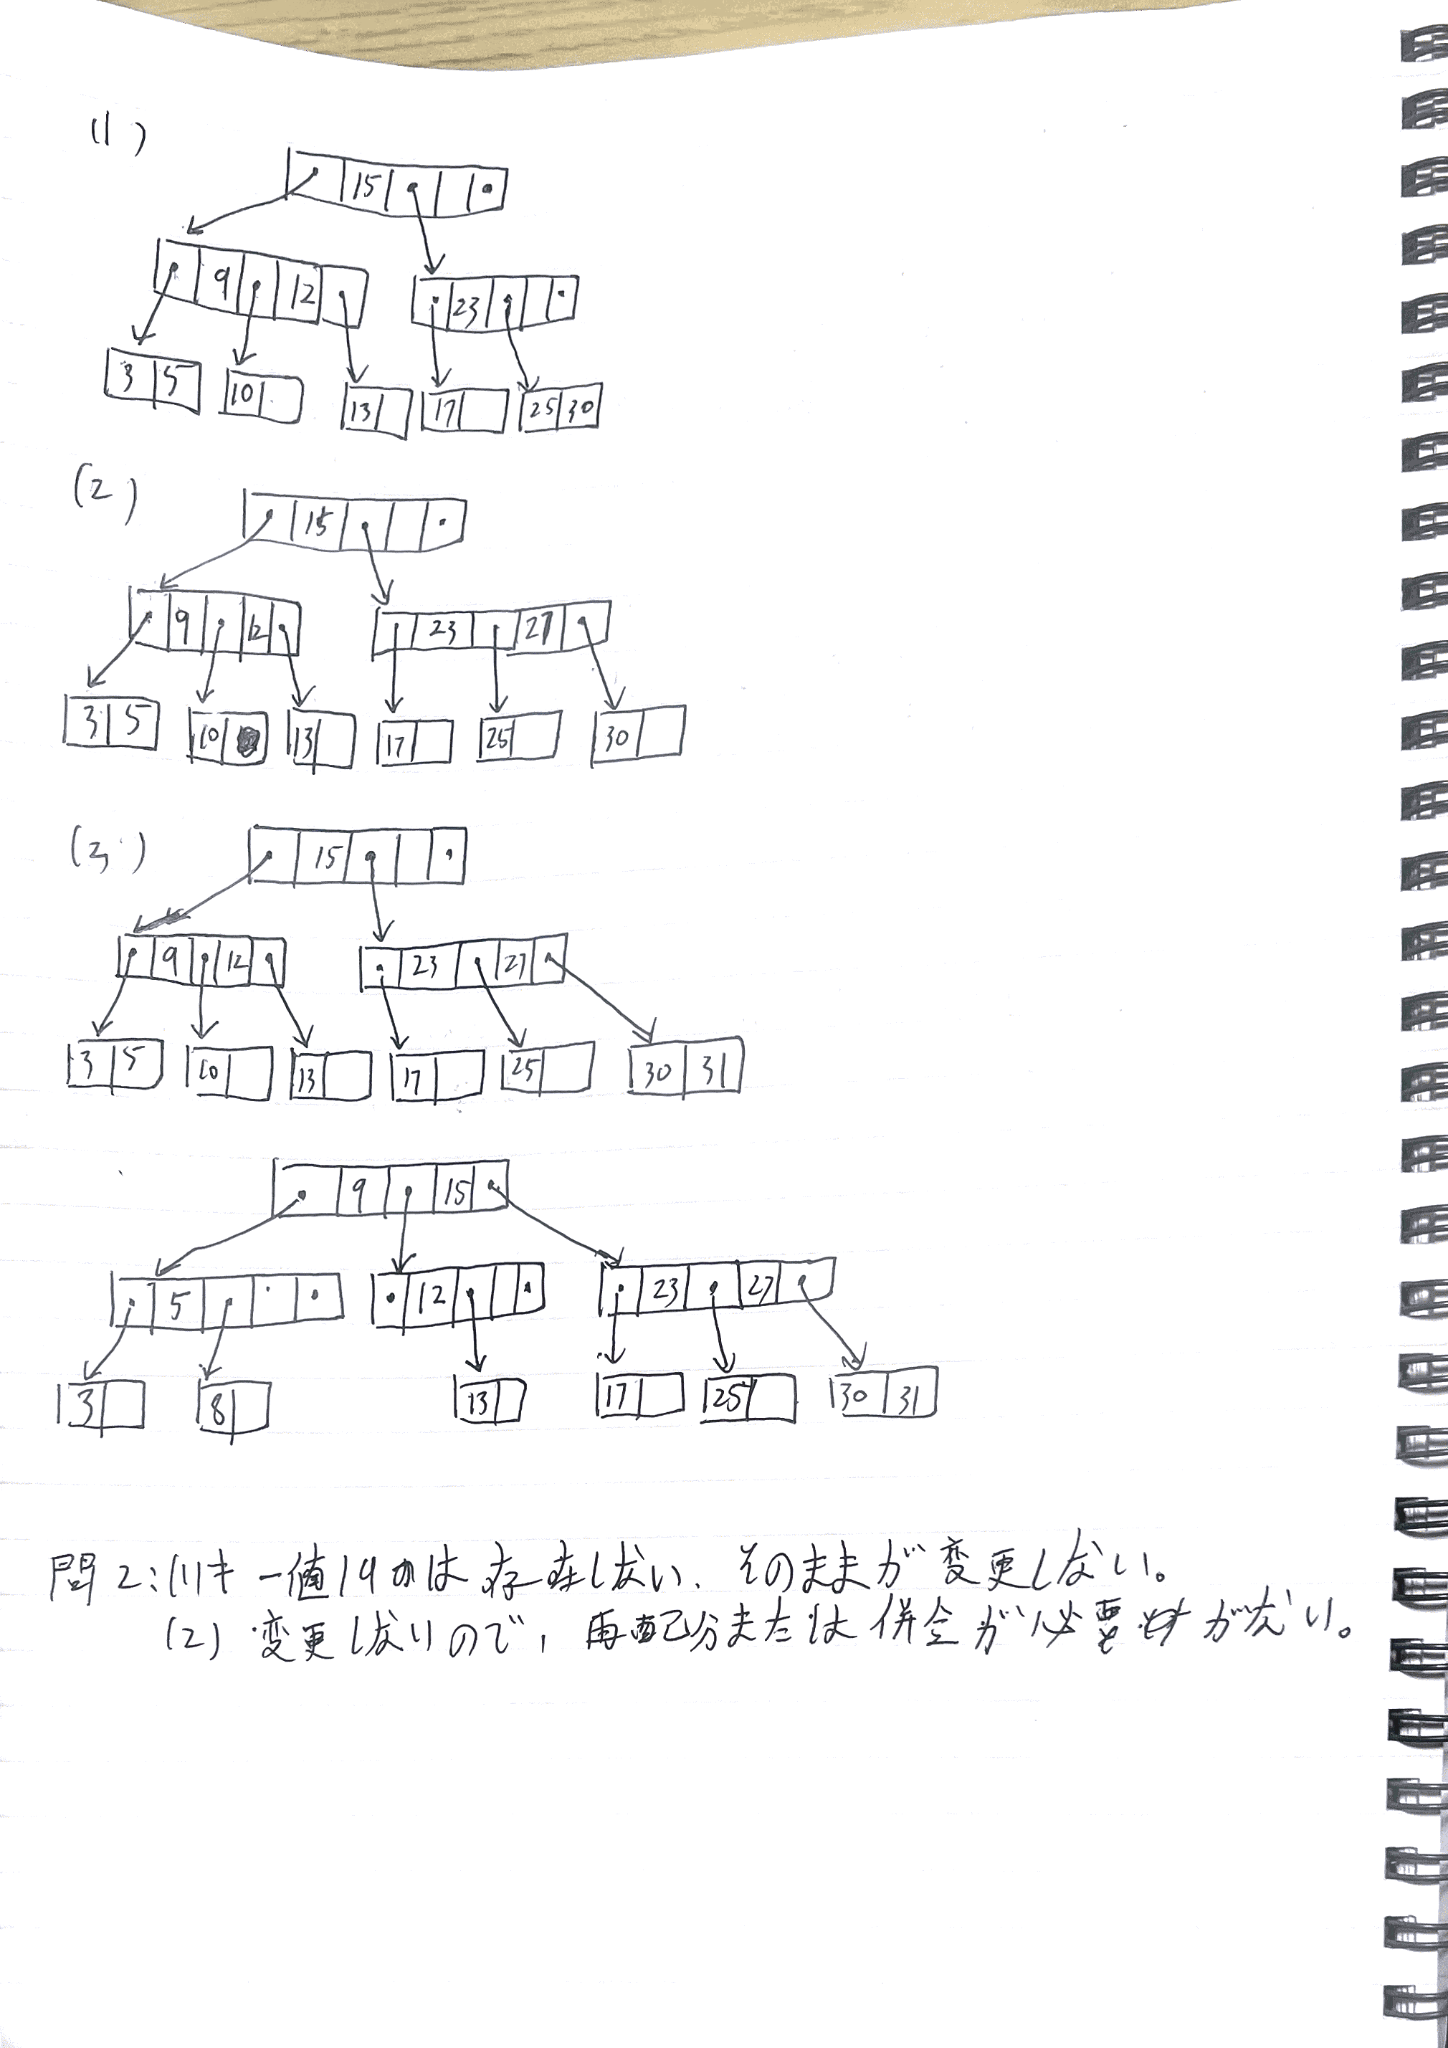 (1)
15
9 12 23
3 5 10 13 17 25 30
(2)
15
9 12 23 27
3 5 10 13 17 25 30
(3)
15
9 12 23 27
3 5 10 13 17 25 30 31
9 15
5 12 23 27
3 8 13 17 25 30 31
問2:(1)キー値19は存在しない、そのままが変更しない。
(2)変更しないので、再配分または併合が必要がない。